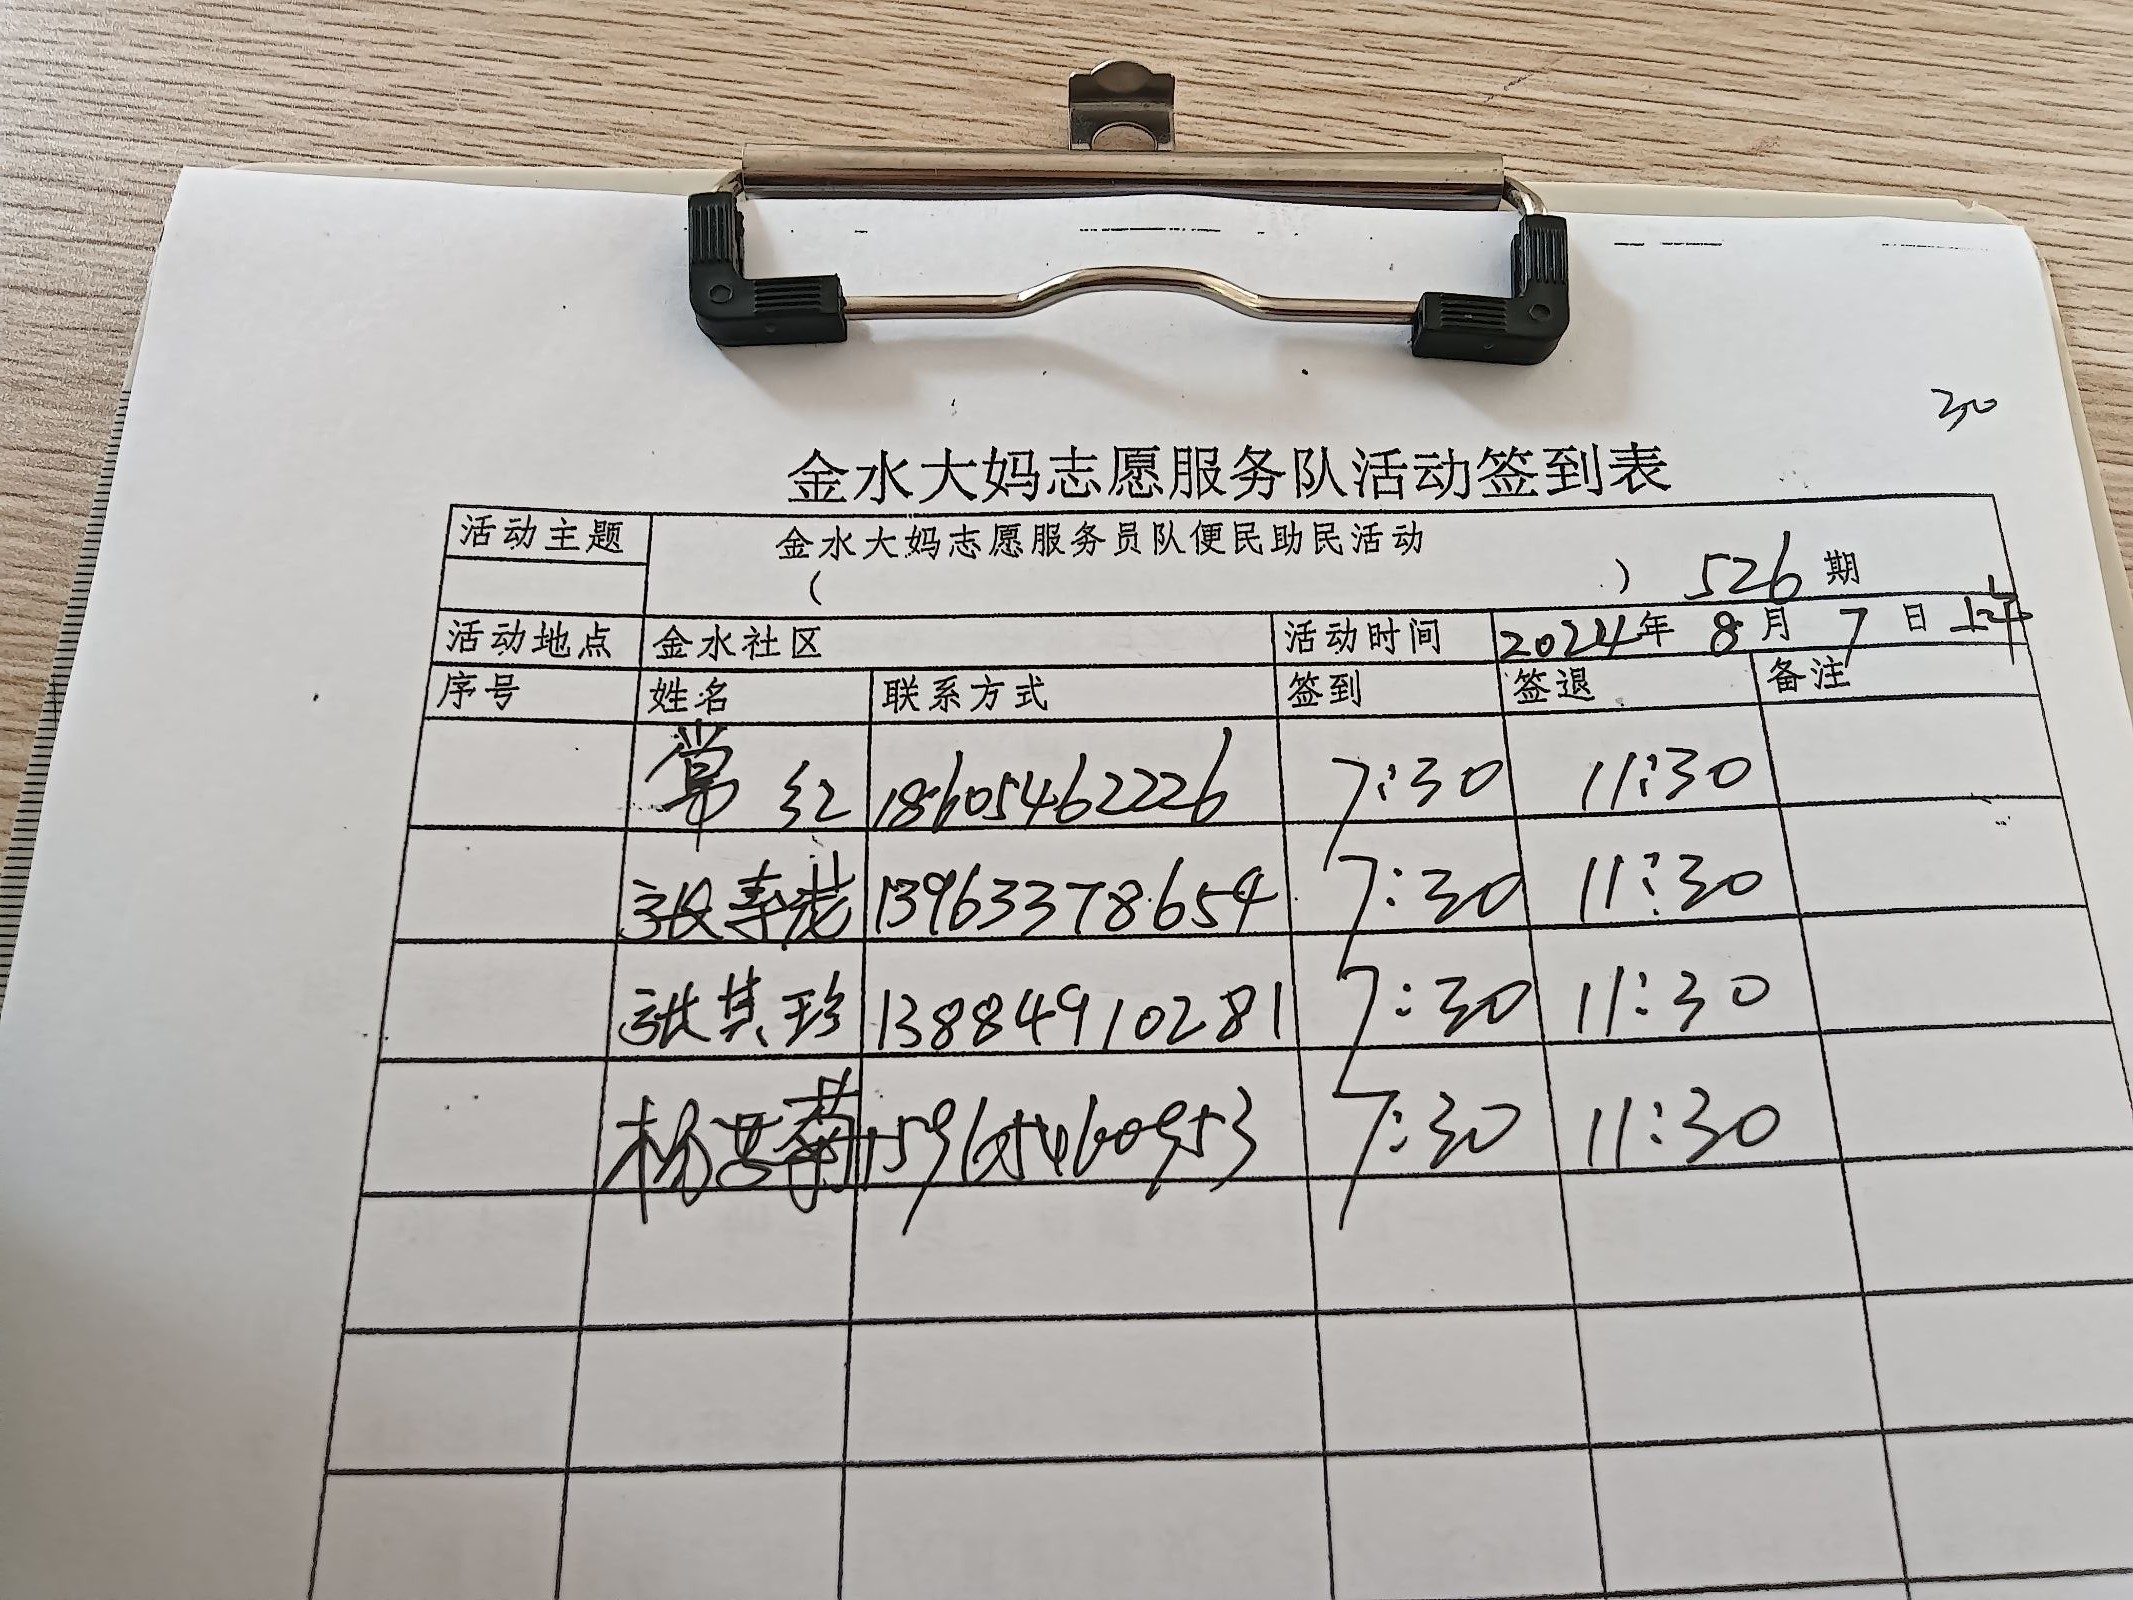 30
金水大妈志愿服务队活动签到表
活动主题 金水大妈志愿服务员队便民助民活动
( ) 526 期
活动地点 金水社区 活动时间 2024年 8月 7日 上午
序号 姓名 联系方式 签到 签退 备注
常红 18605462226 7:30 11:30
张春 13963378654 7:30 11:30
张其珍 13884910281 7:30 11:30
杨兰菊 15965460953 7:30 11:30